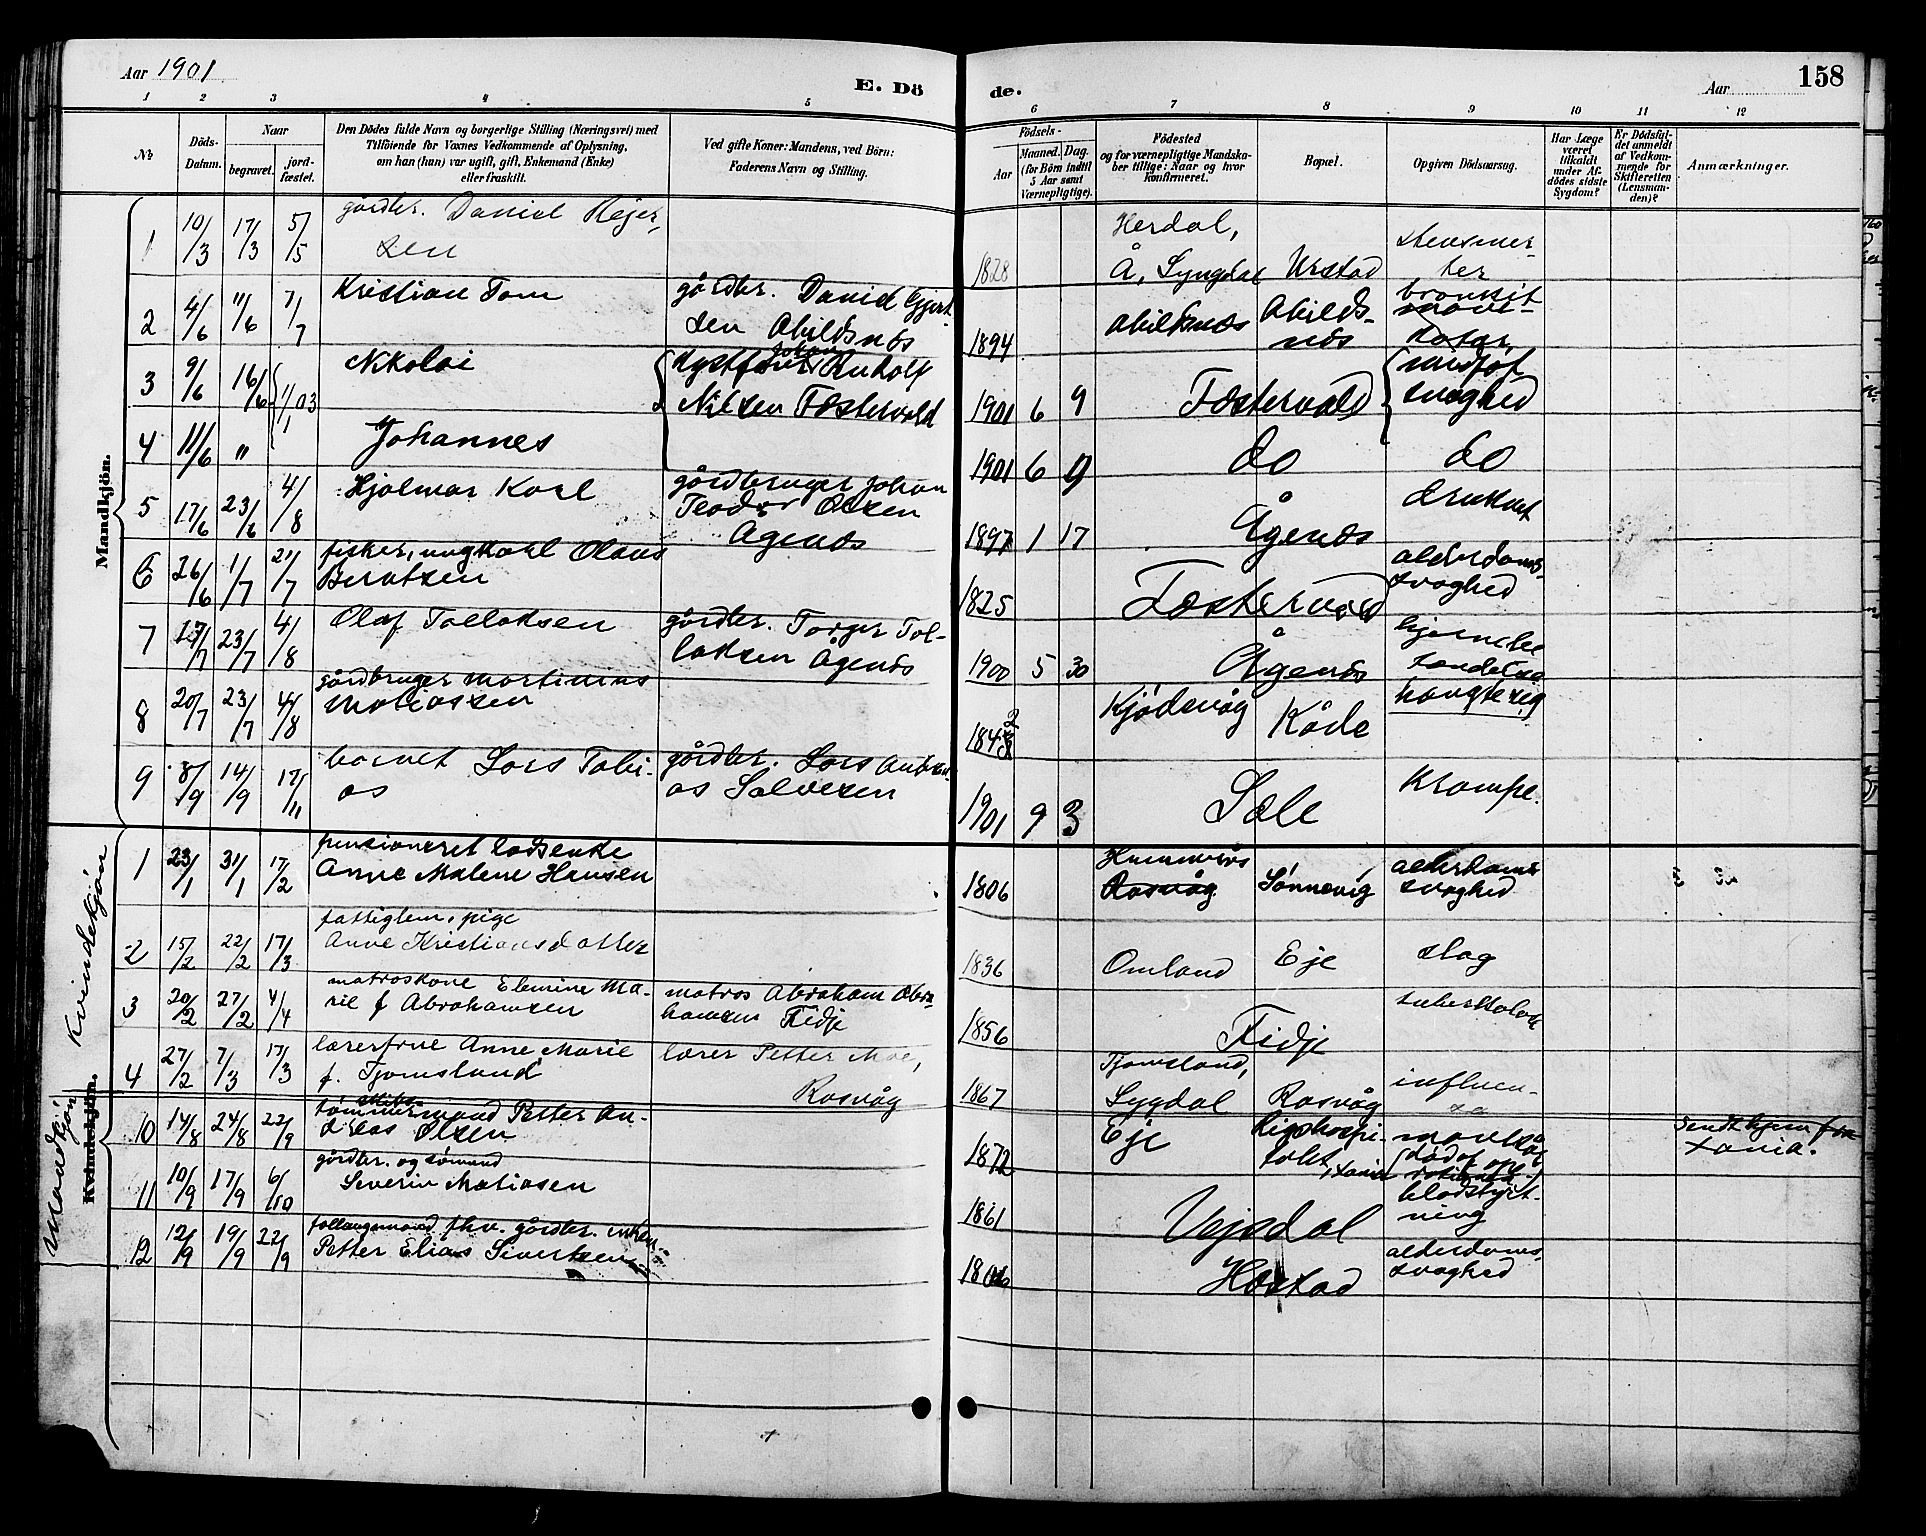 Aar 1901
E. Dö
de.
Aar
158
1 2 3 4 5
6 7 8 9 10 11 12
№
Döds-Datum.
Naar
begravet.
jord-fæstet.
Den Dödes fulde Navn og borgerlige Stilling (Næringsvei) med
Tilföiende for Voxnes Vedkommende af Oplysning,
om han (hun) var ugift, gift, Enkemand (Enke)
eller fraskilt.
Ved gifte Koner: Mandens, ved Börn:
Faderens Navn og Stilling.
Födsels-
Aar
Maaned. Dag.
(for Börn indtil
5 Aar samt
Værnepligtige).
Födested
og for værnepligtige Mandska-
ber tillige: Naar og hvor
konfirmeret.
Bopæl.
Opgiven Dödsaarsag.
Har Læge
været
tilkaldt
under Af-
dödes sidste
Sygdom?
Er Dödsfal-
det anmeldt
af Vedkom-
mende for
Skifteretten
(Lensman-
den)?
Anmærkninger.
Mandkjön.
1 10/3 17/3 5/5 gårdbr. Daniel Rejer-
sen
1828 Herdal,
Å, Lyngdal Urstad
2 4/6 11/6 7/7 Kristian Tom gårdbr. Daniel Gjert-
sen Abildsnæs
1894 Abildsnæs Abilds-
næs bronkit
3 9/6 16/6 1/1 03 Nikolai Johan Rudolf
Nilsen Fæstervold
1901 6 9 Fæstervold
svaghed
4 11/6 " Johannes
1901 6 9 do do
5 17/6 23/6 4/8 Hjalmar Karl gårdbruger Johan
Teodor Olsen
Agenæs
1897 1 17 Ågenæs druknet
6 26/6 1/7 21/7 fisker, ungkarl Olaus
Berntsen
1825 Fæstervold alderdoms-
svaghed
7 17/7 23/7 4/8 Olaf Tollaksen gårdbr. Torger Tol-
laksen Ågenæs
1900 5 30 Ågenæs
8 20/7 23/7 4/8 gårdbruger Martinius
Matiassen
1843 2 Kjødevåg Kåde hængte sig
9 8/9 14/9 17/11 barnet Lars Tobi-
as gårdbr. Lars
Salvesen
1901 9 3 Sæle Krampe.
Kvindekjön
1 23/1 31/1 17/2 pensioneret lodsenke
Anne Malene Hansen
1806 Rosvåg Sönnevig alderdoms
svaghed
2 15/2 22/2 17/3 fattiglem, pige
Anne Kristiansdatter
1836 Omland Eje slag
3 20/2 27/2 4/4 matroskone Elemine Ma-
rie f. Abrahamsen matros Abraham Abra-
hamsen Fidje
1856 Fidje
4 27/2 7/3 17/3 lærerfrue Anne Marie
f. Tjomsland lærer Petter Moe,
Rosvåg
1867 Tjomsland,
Lygdal Rosvåg influen-
za
Mandkjön
Kvindekjön.
10 14/8 24/8 22/9 tömmermand Petter An-
dreas Olsen
1872 Eje Rigshospi-
talet, xania
sendt hjem fra
xania.
11 10/9 17/9 6/10 gårdbr. og sömand
Severin Matiasen
1861 Vejsdal blodstyrt-
ning
12 12/9 19/9 22/9 fhv. gårdbr.
Petter Elias Sivertsen
Hæstad alderdoms-
svaghed